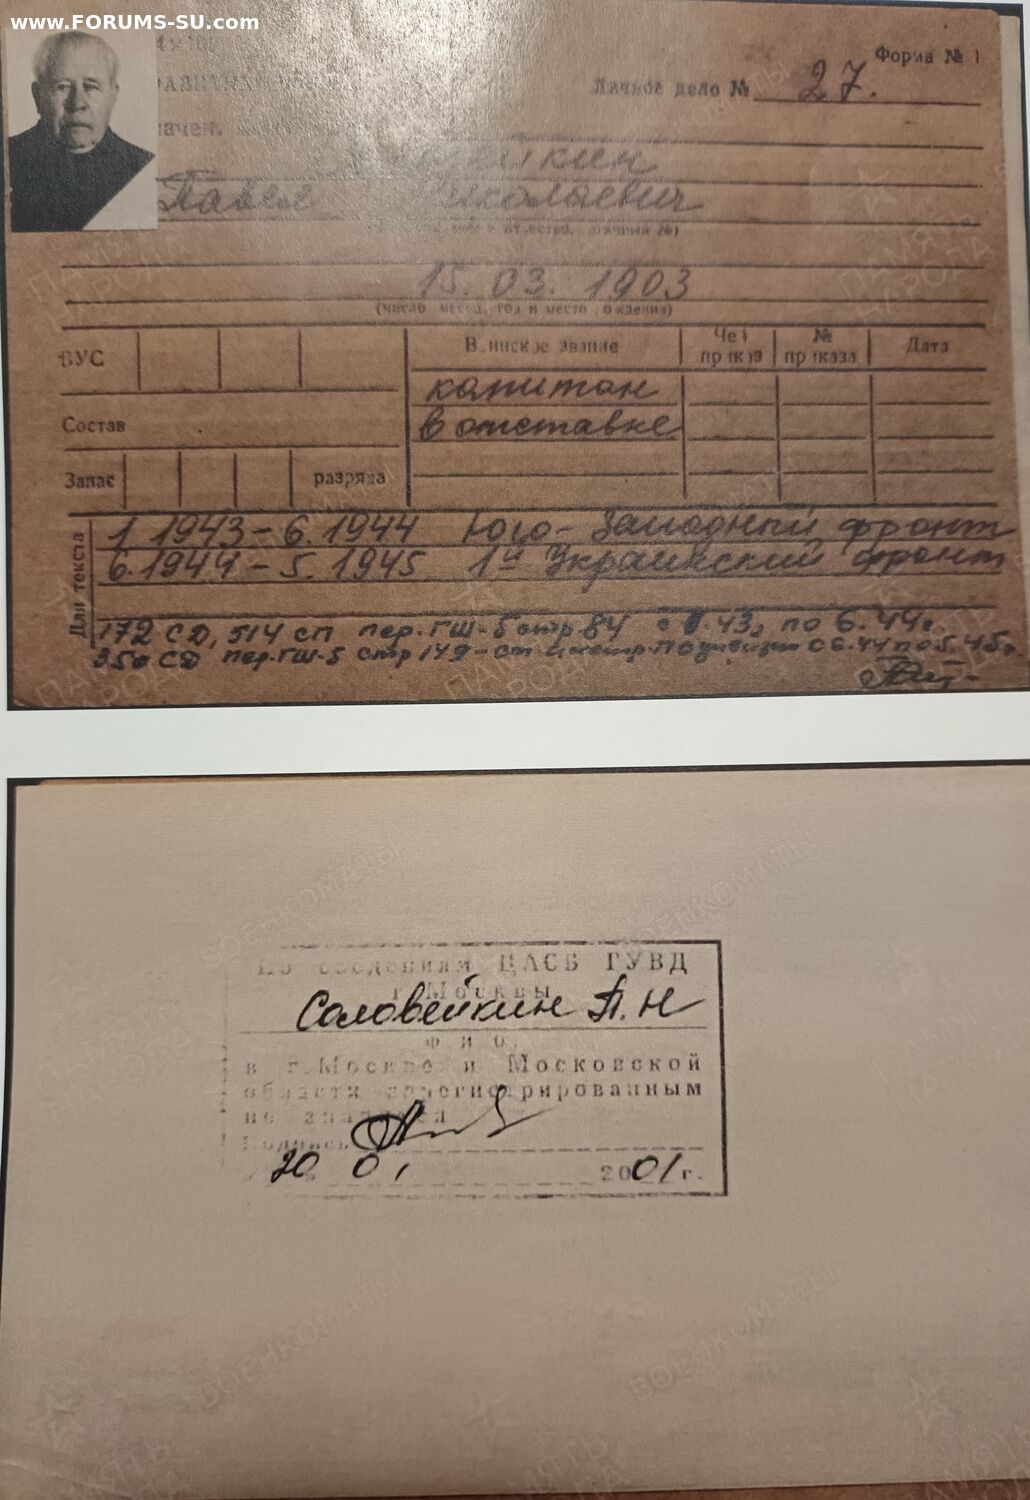 www.FORUMS-SU.com
Форма № 1
Личное дело № 27.
Павел Николаевич
15. 03. 1903
(число месяц, год и место рождения)
ВУС
Воинское звание
Чей приказ
№ приказа
Дата
капитан
в отставке
Состав
Запас
разряда
Для текста
1 1943 - 6. 1944 Юго-Западный фронт
6. 1944 - 5. 1945 1й Украинский фронт
172 СД, 514 сп пер. ГШ-5 стр 84 с 43, по 6. 44г.
350 СД пер. ГШ-5 стр 149 06.44 по 5. 45г
По сведениям ЦАСБ ГУВД
г. Москвы
Соловейкин П. Н
Ф. И. О.
в г. Москве и Московской
области зарегистрированным
не значился
Подпись
20 01 2001 г.
ПАМЯТЬ НАРОДА
ВОЕНКОМАТЫ